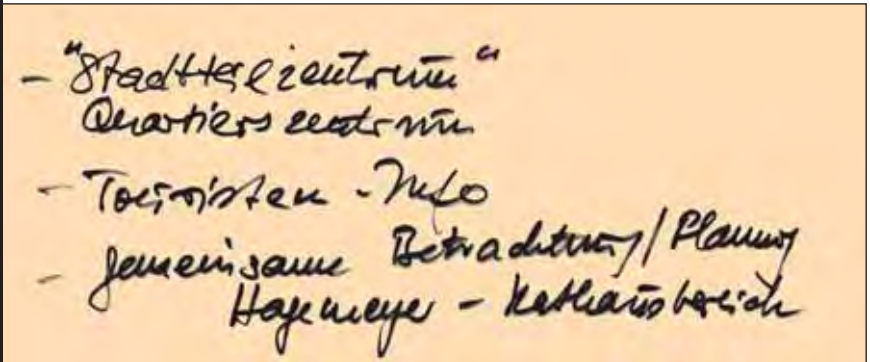 - "Stadtteilzentrum"
Quartierszentrum
- Touristen-Info
- gemeinsame Betrachtung/Planung
Hagemeyer - Rathausbereich